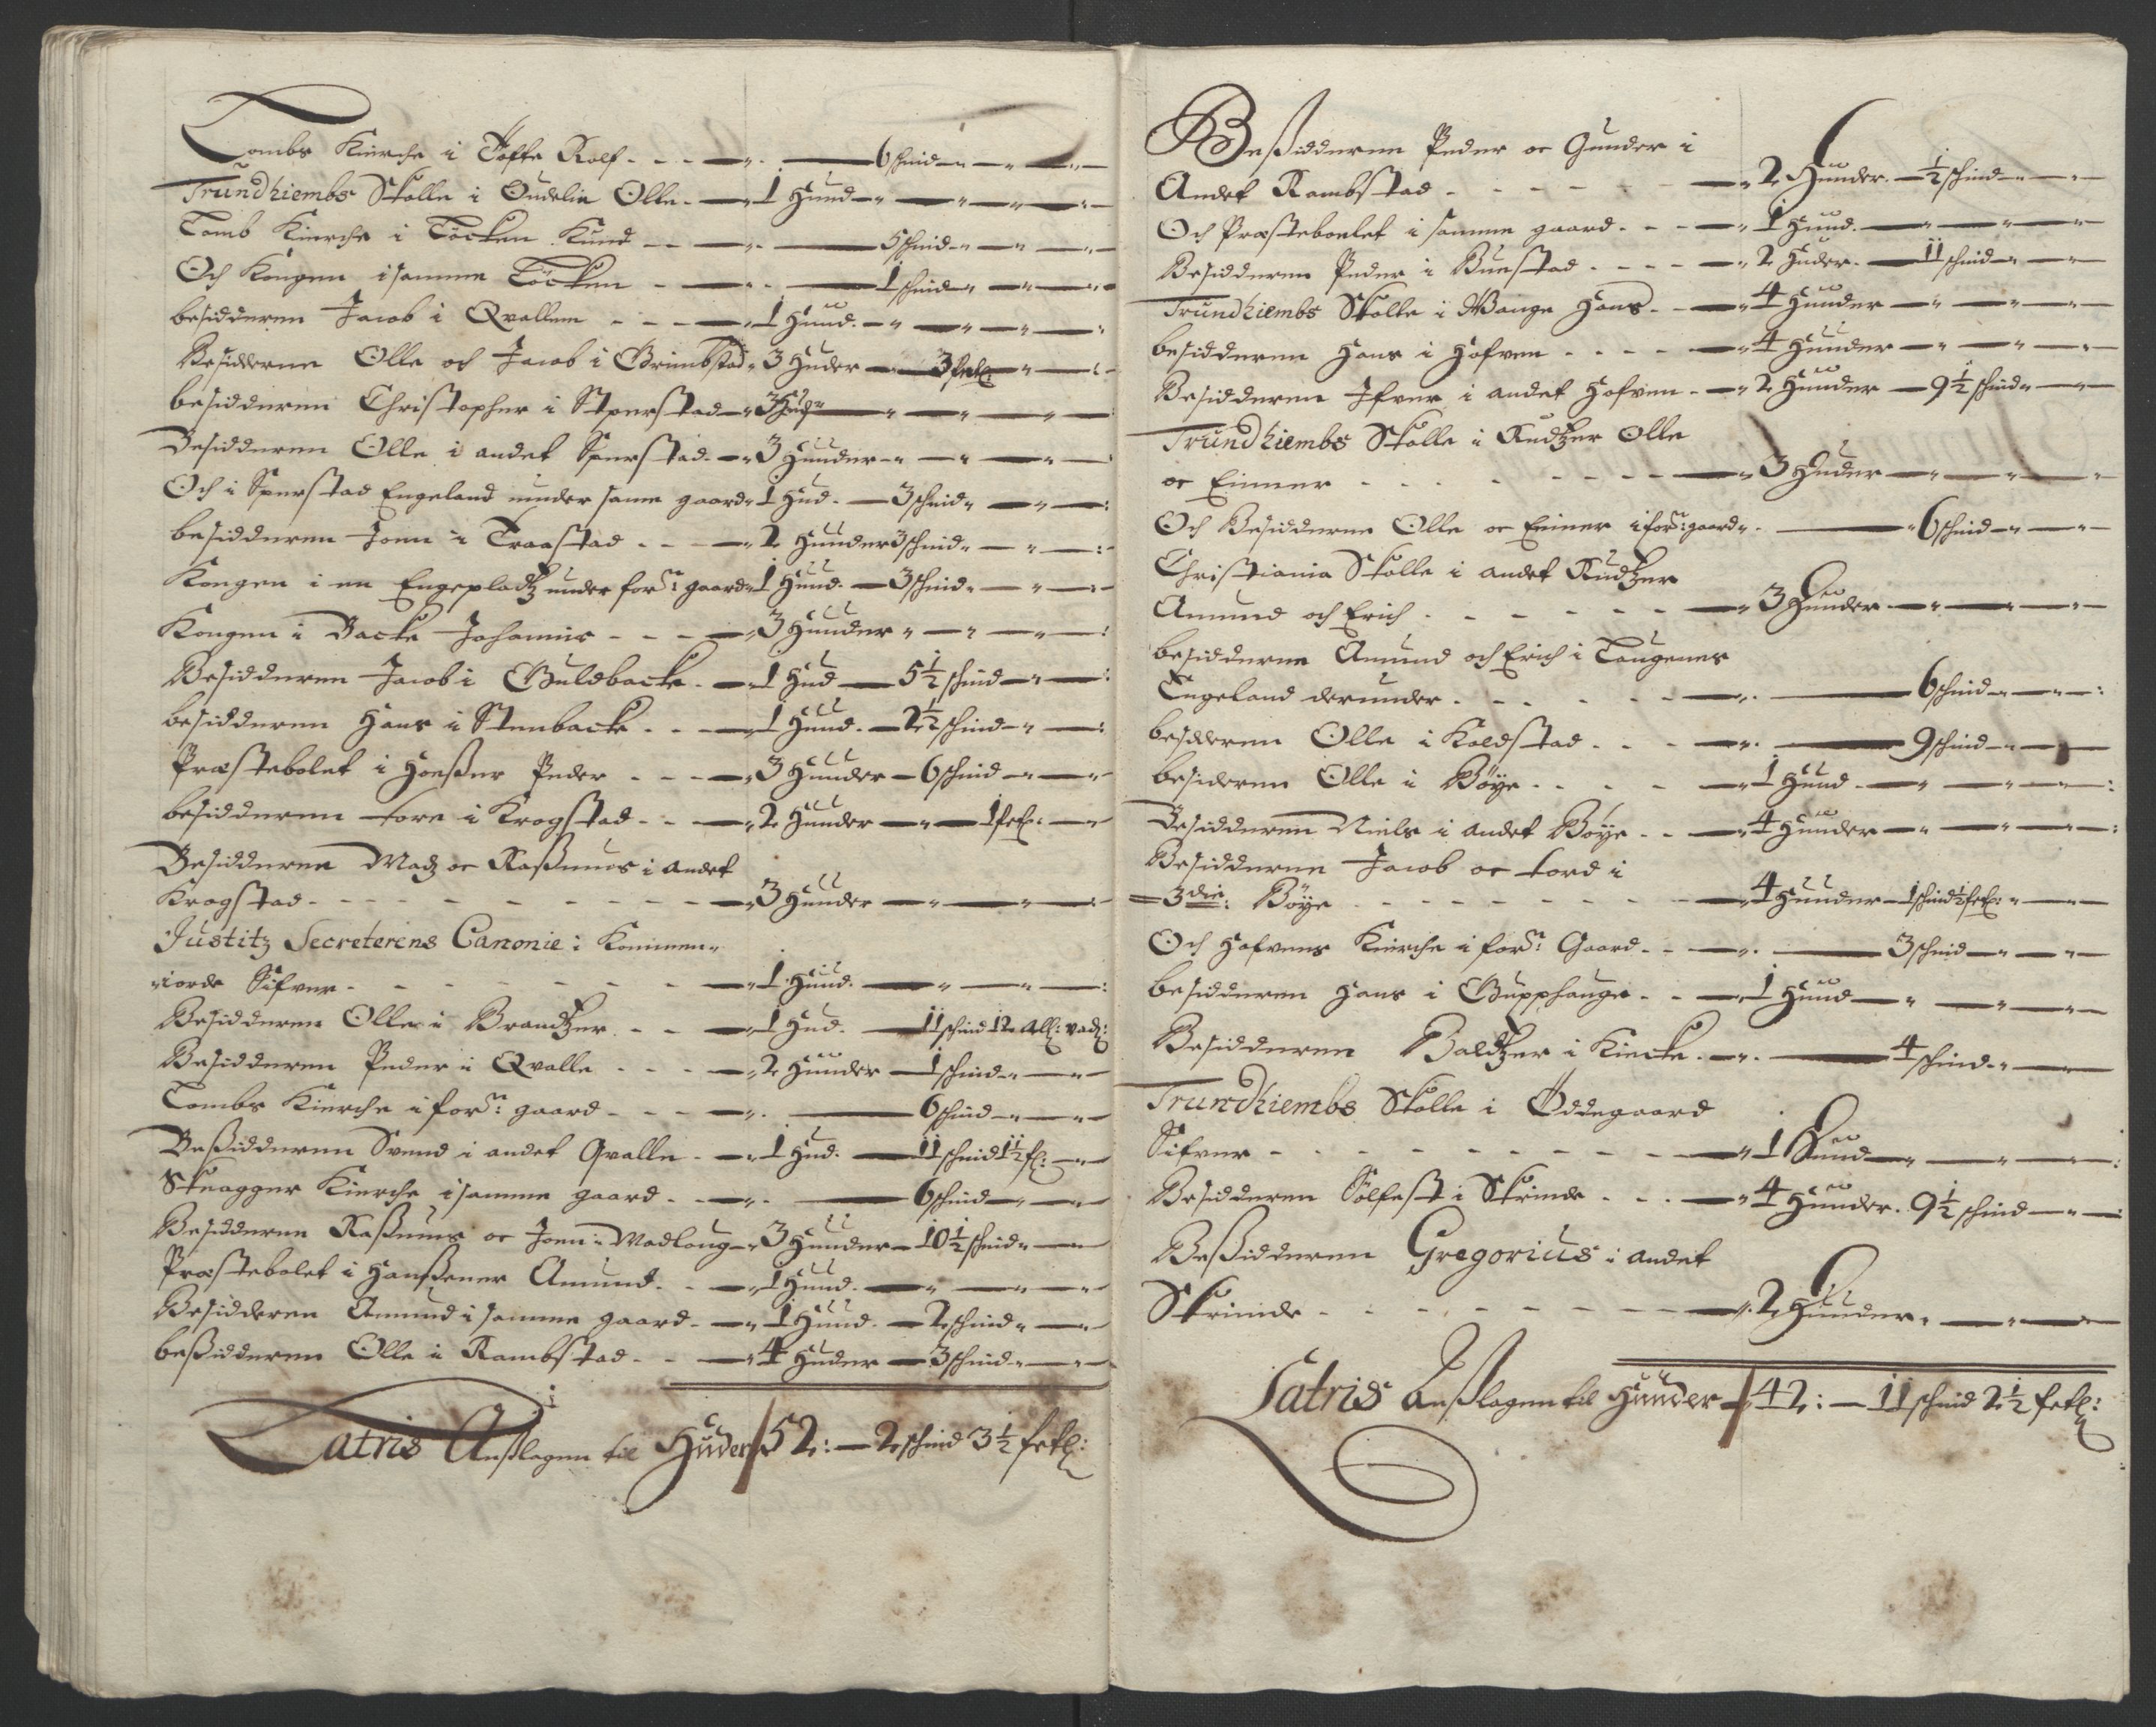 Tombs Kirche i Tofte Rolf - - - 6 schind
Trundhiembs Skolle i Oudelin Olle - 1 Hund
Tomb Kirche i Töcken Knud - - 5 schind
Och Kongen i samme Töcken - - 1 schind
besidderen Jacob i Qvallem - - - 1 Hund
Besidderne Olle och Jacob i Grimbstad 3 Huder 3 fetl:
besidderen Christopher i Sperstad 3 Hud
Besidderen Olle i andet Sperstad 3 Hunder
Och i Sperstad Engeland under same gaard 1 Hud - 3 schind
besidderen Joen i Traastad - - 2 Hunder 3 schind
Kongen i en Engepladtz under forne: gaard 1 Hund - 3 schind
Kongen i Backe Johannis - - - 3 Hunder
Besidderen Jacob i Guldbacke - 1 Hud - 5 1/2 schind
besidderen Hans i Stenbacke - - 1 Hund - 2 1/2 schind
Præstebolet i Peder - - - 3 Hunder - 6 schind
besidderen tore i Krogstad - - 2 Hunder - 1 fetl:
Besidderne Madz oc Rassmus i andet
Krogstad - - - - - - - 3 Hunder
Justitz Secreterens Canonie i Kommen-
iorde Sifver - - - - - - - 1 Hund
Besidderen Olle i Brandtzer - - 1 Hud - 11 schind 12 All: vad:
Besidderen Peder i Qvalle - - - 2 Hunder 1 schind
Tombs Kirche i forne: gaard - - - 6 schind
Bessidderen Svend i andet Qvalle - 1 Hud - 11 schind 1 1/2 f:
Kirche i samme gaard - - 6 schind
Besidderne Rassmus oc Joen i Madlaug 3 Hunder - 10 1/2 schind
Præstebolet i Amund - - 1 Hund
Besidderen Amund i samme gaard - 1 Hund - 2 schind
bessidderen Olle i Rambstad - - 4 Huder - 3 schind
Latris Ansslagen til Huder 52: - 2 schind 3 1/2 fetl:
Bessidderne Peder oc Gunder i
Andet Rambstad - - - - - 2 Hunder - 1/2 schind
Och Præstebolet i samme gaard - - 1 Hund
Besidderen Peder i Buestad - - - - 2 Huder - 11 schind
Trundhiembs Skolle i Wange Hans - - 4 Hunder
besidderen Hans i Hafven - - - - 4 Hunder
Besidderen Ifver i andet Hafven - 2 Hunder - 9 1/2 schind
Trundhiembs Skolle i Rudtzer Olle
oc Einner - - - - - - - - 3 Huder
Och Besidderne Olle oc Einer i forne: gaard - 6 schind
Christiania Skolle i andet Rudtzer
Amund och Erich - - - - - - 3 Hunder
besidderne Amund och Erich i Taugenes
Engeland derunder - - - - - 6 schind
besidderen Olle i Koldstad - - - 9 schind
besideren Olle i Böye - - - - 1 Hund
Besidderen Niels i andet Böye - - 4 Hunder
Besidderne Jacob oc tord i
3die: Böye - - - - - - - - 4 Hunder - 1 schind 1/2 fetl:
Och Hafvens Kirche i forne: Gaard - - 3 schind
besidderen Hans i Gupphauge - - 1 Hund
Besidderen Baldtzer i Kircke - 4 schind
Trundhiembs Skolle i Ödegaard
Sifver - - - - - - - - 1 Hund
Besidderen Solfest i Skrinde - - - 4 Hunder - 9 1/2 schind
Bessidderen Gregorius i andet
Skrinde - - - - - - - - 2 Hunder
Latris Ansslagen til Hunder 42: - 11 schind 2 1/2 fetl: